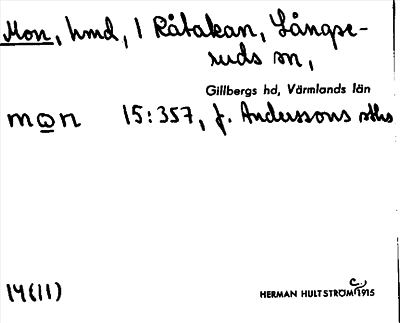 Mon, hmd, i Råtakan, Långse-
ruds sn,
Gillbergs hd, Värmlands län
mωn 15:357, f. Anderssons sths
14(11)
HERMAN HULTSTRÖM C., 1915